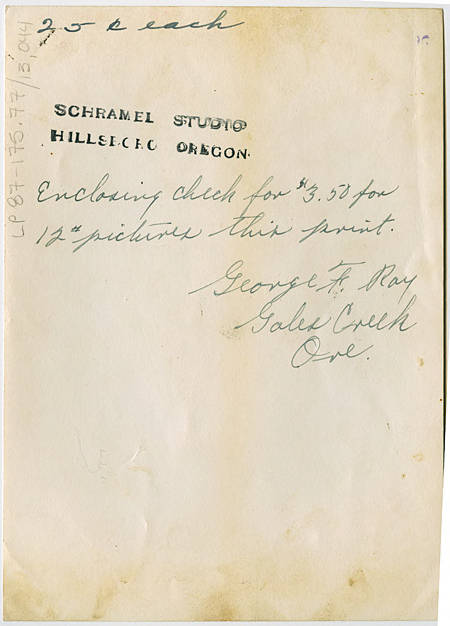 25¢ each
LP87-175.77/13,044
SCHRAMEL STUDIO
HILLSBORO OREGON.
Enclosing check for $3.50 for
12 pictures this print.
George F. Ray
Gales Creek
Ore.